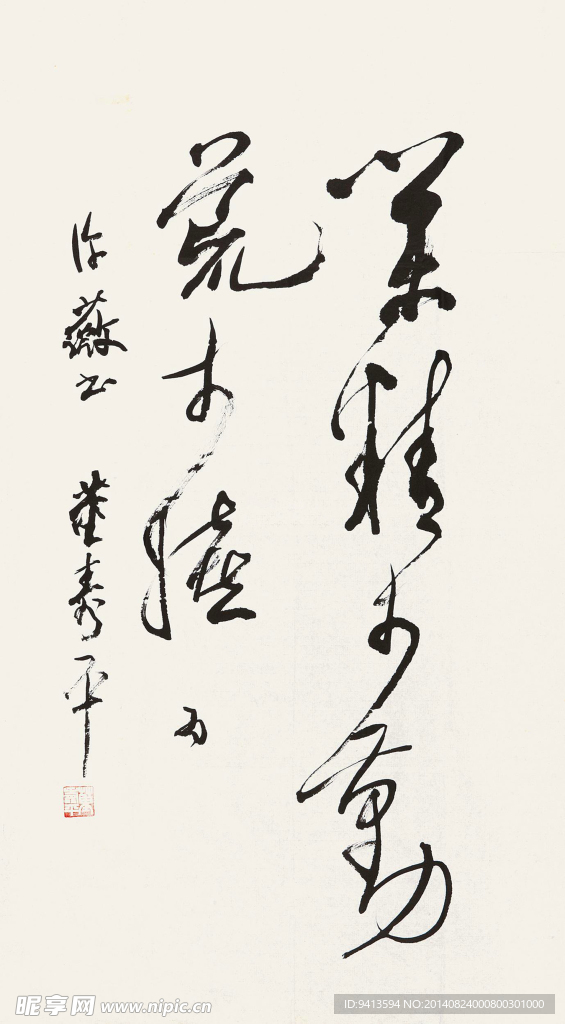 业精于勤
荒于嬉 为
许薇书 董寿平
昵享网 www.nipic.cn
ID:9413594 NO:20140824000800301000